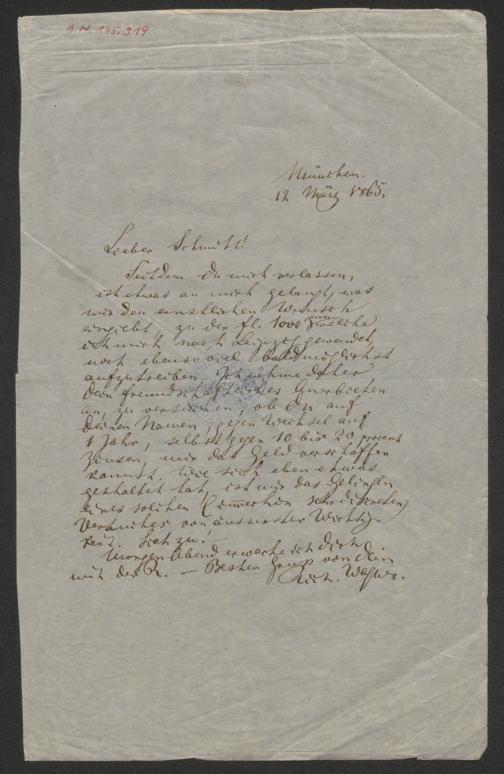 A.N. 145.319
München.
12 März 1865.
Lieber Schmitt!
Seitdem Du mich verlassen,
ist etwas an mich gelangt, was
mir den ernstlichen Wunsch
eingiebt, zu den fl. 1000 um welche
ich mich nach Leipzig gewendet,
noch ebensoviel baldmöglichst
aufzutreiben. Ich nehme daher
Dein freundschaftliches Anerbieten
an, zu versuchen, ob Du auf
Deinen Namen, gegen Wechsel auf
1 Jahr, selbst gegen 10 bis 20 procent
Zinsen, mir das Geld verschaffen
kannst. Wie sich eben etwas
gestaltet hat, ist mir das Gelingen
eines solchen (immerhin sehr discreten)
Versuches von äusserster Wichtig-
keit. Sieh zu!
Morgen Abend erwarte ich Dich
mit der R. — Besten Gruss von Dein
Rich. Wagner.